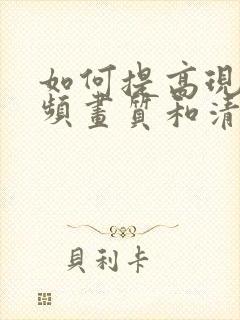 如何提高現
頻畫質和清
貝利卡